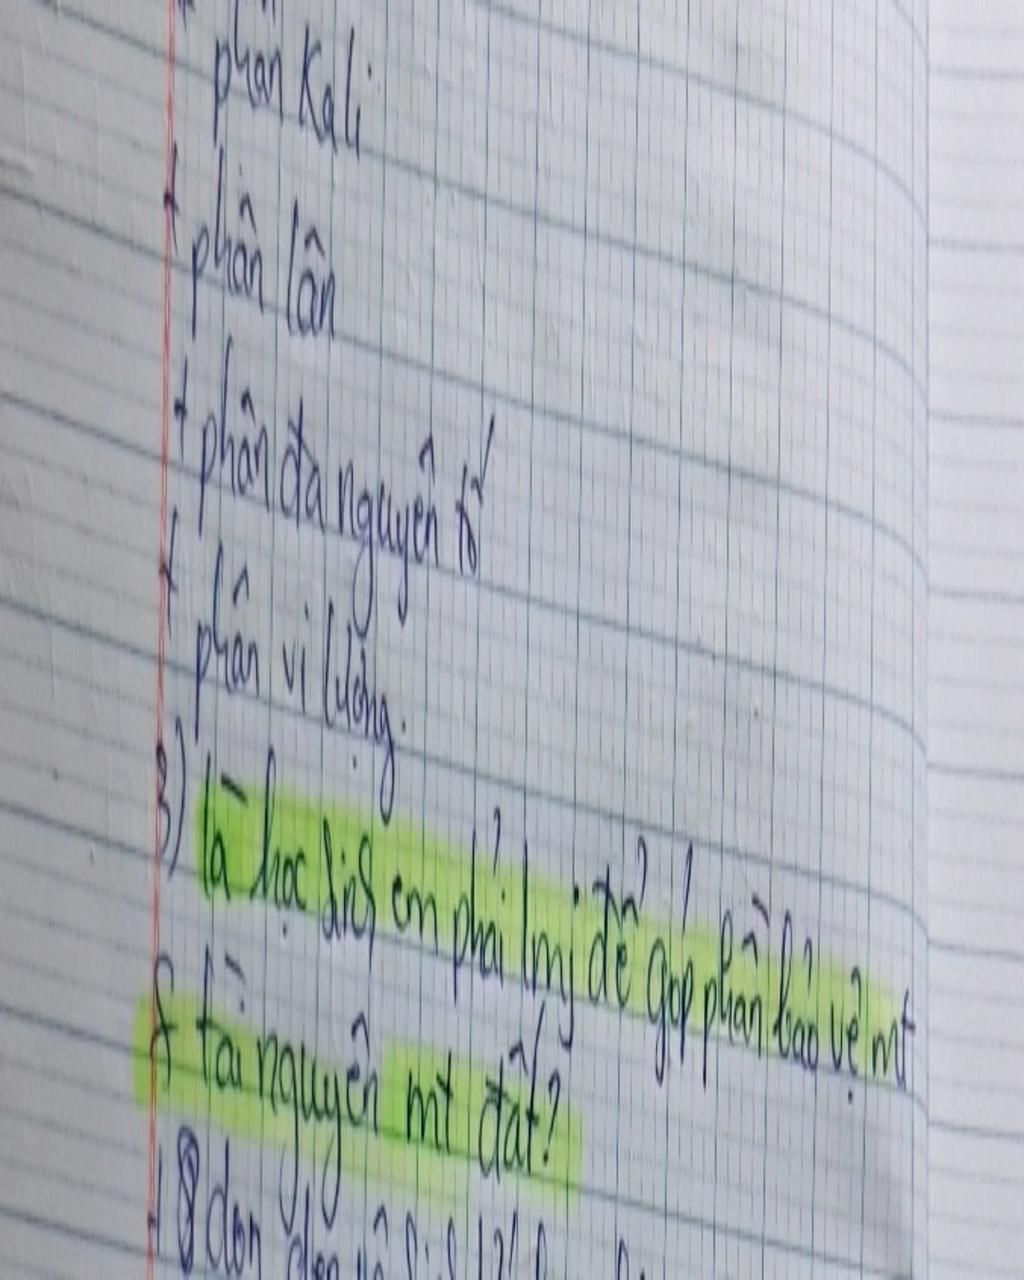 phân Kali
+ phân lân
+ phân đa nguyên tố
+ phân vi lượng.
3) là học sinh em phải lmj để góp phần bảo vệ mt
& tài nguyên mt đất?
+ dọn